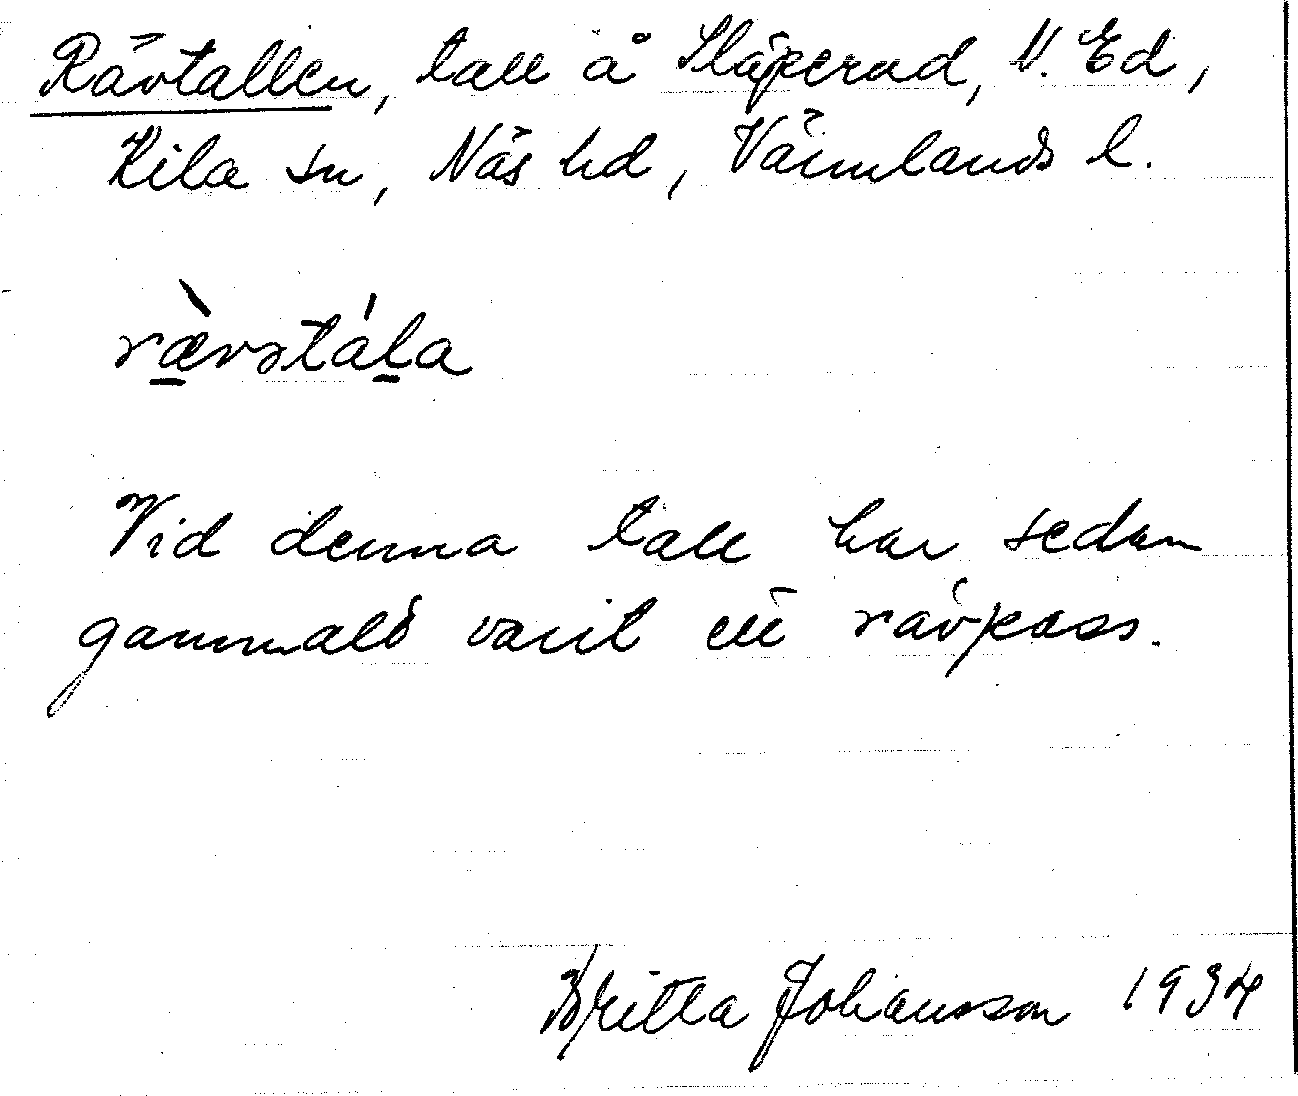 Rävtallen, tall å Släperud, N. Ed,
Kila sn, Näs hd, Värmlands l.
rævstála
Vid denna tall har sedan
gammalt varit ett rävpass.
Britta Johansson 1934